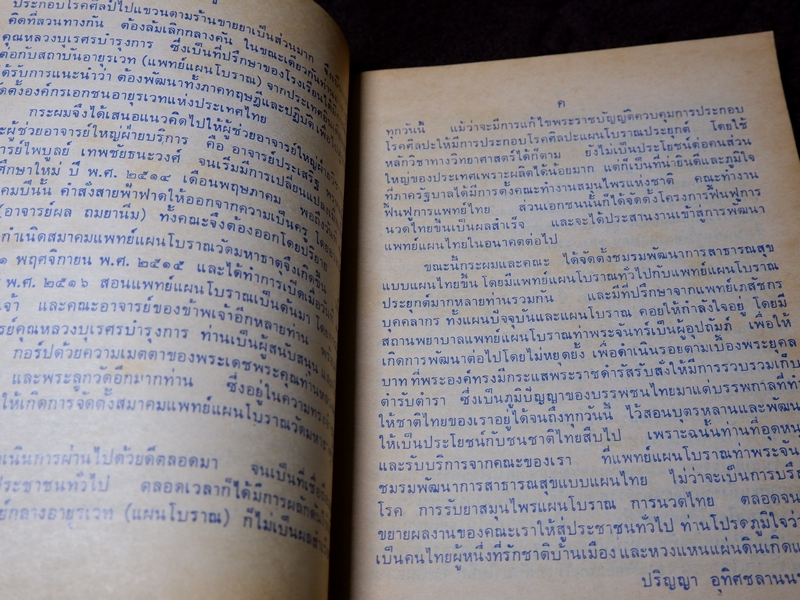 ประกอบโรคศิลป์ไปแขวนตามร้านขายยาเป็นส่วนมาก
คิดที่สวนทางกัน ต้องล้มเลิกกลางคัน ในขณะเดียวกัน
คุณหลวงบุเรศรบำรุงการ ซึ่งเป็นที่ปรึกษาของโรงเรียน
ต่อกับสถาบันอายุรเวท (แพทย์แผนโบราณ) จากประเทศ
ได้รับการแนะนำว่า ต้องพัฒนาทั้งภาคทฤษฎีและปฏิบัติ
ตั้งองค์กรเอกชนอายุรเวทแห่งประเทศไทย
กระผมจึงได้เสนอแนวคิดไปให้ผู้ช่วยอาจารย์ใหญ่ฝ่าย
ะผู้ช่วยอาจารย์ใหญ่ฝ่ายบริการ คือ อาจารย์ประเสริฐ
ารย์ไพบูลย์ เทพชัยธนะวงศ์ จนเริ่มมีการเปลี่ยนแปลง
ศึกษาใหม่ ปี พ.ศ. ๒๕๑๔ เดือนพฤษภาคม
คมปีนั้น คำสั่งสายฟ้าฟาดให้ออกจากความเป็นครู
(อาจารย์ผล ถมยานิ่ม) ทั้งคณะจึงต้องออกโดยปริยาย
กำเนิดสมาคมแพทย์แผนโบราณวัดมหาธาตุจึงเกิดขึ้น
๑ พฤศจิกายน พ.ศ. ๒๕๑๕ และได้ทำการเปิดเมื่อวันที่
พ.ศ. ๒๕๑๖ สอนแพทย์แผนโบราณเป็นต้นมา
เจ้า และคณะอาจารย์ของข้าพเจ้าอีกหลายท่าน
รย์คุณหลวงบุเรศรบำรุงการ ท่านเป็นผู้สนับสนุน
กอร์ปด้วยความเมตตาของพระเดชพระคุณท่าน
และพระลูกวัดอีกมากท่าน ซึ่งอยู่ในความทรงจำ
ให้เกิดการจัดตั้งสมาคมแพทย์แผนโบราณวัดมหาธาตุ
เนินการผ่านไปด้วยดีตลอดมา จนเป็นที่
ประชาชนทั่วไป ตลอดเวลาก็ได้มีการผลักดัน
ย์กลางอายุรเวท (แผนโบราณ) ก็ไม่เป็นผล
ค
ทุกวันนี้ แม้ว่าจะมีการแก้ไขพระราชบัญญัติควบคุมการประกอบ
โรคศิลปะให้มีการประกอบโรคศิลปะแผนโบราณประยุกต์ โดยใช้
หลักวิชาทางวิทยาศาสตร์ได้ก็ตาม ยังไม่เป็นประโยชน์ต่อคนส่วน
ใหญ่ของประเทศเพราะผลิตได้น้อยมาก แต่ก็เป็นที่น่ายินดีและภูมิใจ
ที่ภาครัฐบาลได้มีการตั้งคณะทำงานสมุนไพรแห่งชาติ คณะทำงาน
ฟื้นฟูการแพทย์ไทย ส่วนเอกชนนั้นก็ได้จัดตั้งโครงการฟื้นฟูการ
นวดไทยขึ้นเป็นผลสำเร็จ และจะได้ประสานงานเข้าสู่การพัฒนา
แพทย์แผนไทยในอนาคตต่อไป
ขณะนี้กระผมและคณะ ได้จัดตั้งชมรมพัฒนาการสาธารณสุข
แบบแผนไทยขึ้น โดยมีแพทย์แผนโบราณทั่วไปกับแพทย์แผนโบราณ
ประยุกต์มากหลายท่านรวมกัน และมีที่ปรึกษาจากแพทย์เภสัชกร
บุคคลากร ทั้งแผนปัจจุบันและแผนโบราณ คอยให้กำลังใจอยู่ โดยมี
สถานพยาบาลแพทย์แผนโบราณท่าพระจันทร์เป็นผู้อุปถัมภ์ เพื่อให้
เกิดการพัฒนาต่อไปโดยไม่หยุดยั้ง เพื่อดำเนินรอยตามเบื้องพระยุคล
บาท ที่พระองค์ทรงมีกระแสพระราชดำรัสรับสั่งให้มีการรวบรวมเก็บ
ตำรับตำรา ซึ่งเป็นภูมิปัญญาของบรรพชนไทยมาแต่บรรพกาลที่ทำ
ให้ชาติไทยของเราอยู่ได้จนถึงทุกวันนี้ ไว้สอนบุตรหลานและพัฒน
ให้เป็นประโยชน์กับชนชาติไทยสืบไป เพราะฉนั้นท่านที่อุดหนุ
และรับบริการจากคณะของเรา ที่แพทย์แผนโบราณท่าพระจัน
ชมรมพัฒนาการสาธารณสุขแบบแผนไทย ไม่ว่าจะเป็นการบริ
โรค การรับยาสมุนไพรแผนโบราณ การนวดไทย ตลอดจน
ขยายผลงานของคณะเราให้สู่ประชาชนทั่วไป ท่านโปรดภูมิใจว่า
เป็นคนไทยผู้หนึ่งที่รักชาติบ้านเมือง และหวงแหนแผ่นดินเกิด
ปริญญา อุทิศชลานน